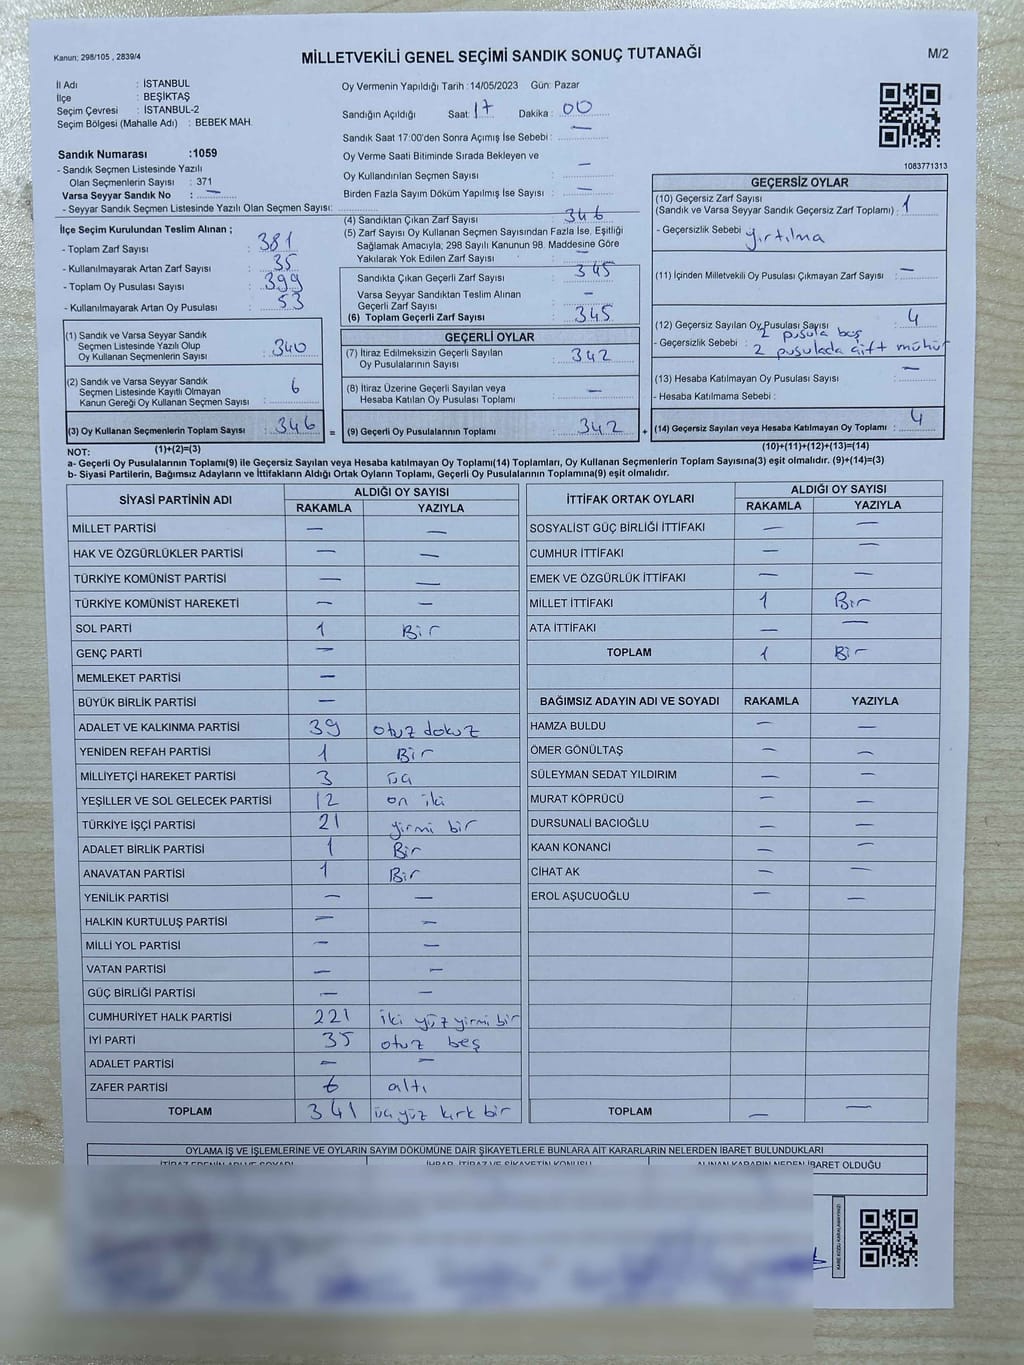 Kanun: 298/105 , 2839/4
MİLLETVEKİLİ GENEL SEÇİMİ SANDIK SONUÇ TUTANAĞI
M/2
İl Adı : İSTANBUL
İlçe : BEŞİKTAŞ
Seçim Çevresi : İSTANBUL-2
Seçim Bölgesi (Mahalle Adı) : BEBEK MAH.
Sandık Numarası :1059
- Sandık Seçmen Listesinde Yazılı
Olan Seçmenlerin Sayısı : 371
Varsa Seyyar Sandık No : —
- Seyyar Sandık Seçmen Listesinde Yazılı Olan Seçmen Sayısı:
Oy Vermenin Yapıldığı Tarih :14/05/2023 Gün: Pazar
Sandığın Açıldığı Saat: 17 Dakika : 00
Sandık Saat 17:00'den Sonra Açımış İse Sebebi : —
Oy Verme Saati Bitiminde Sırada Bekleyen ve
Oy Kullandırılan Seçmen Sayısı : —
Birden Fazla Sayım Döküm Yapılmış İse Sayısı : —
1083771313
İlçe Seçim Kurulundan Teslim Alınan ;
- Toplam Zarf Sayısı : 381
- Kullanılmayarak Artan Zarf Sayısı : 35
- Toplam Oy Pusulası Sayısı : 399
- Kullanılmayarak Artan Oy Pusulası : 53
(1) Sandık ve Varsa Seyyar Sandık
Seçmen Listesinde Yazılı Olup
Oy Kullanan Seçmenlerin Sayısı : 340
(2) Sandık ve Varsa Seyyar Sandık
Seçmen Listesinde Kayıtlı Olmayan
Kanun Gereği Oy Kullanan Seçmen Sayısı : 6
(3) Oy Kullanan Seçmenlerin Toplam Sayısı : 346
(1)+(2)=(3)
(4) Sandıktan Çıkan Zarf Sayısı : 346
(5) Zarf Sayısı Oy Kullanan Seçmen Sayısından Fazla İse, Eşitliği
Sağlamak Amacıyla; 298 Sayılı Kanunun 98. Maddesine Göre
Yakılarak Yok Edilen Zarf Sayısı :
Sandıkta Çıkan Geçerli Zarf Sayısı : 345
Varsa Seyyar Sandıktan Teslim Alınan
Geçerli Zarf Sayısı : —
(6) Toplam Geçerli Zarf Sayısı : 345
GEÇERLİ OYLAR
(7) İtiraz Edilmeksizin Geçerli Sayılan
Oy Pusulalarının Sayısı : 342
(8) İtiraz Üzerine Geçerli Sayılan veya
Hesaba Katılan Oy Pusulası Toplamı : —
= (9) Geçerli Oy Pusulalarının Toplamı : 342 +
GEÇERSİZ OYLAR
(10) Geçersiz Zarf Sayısı
(Sandık ve Varsa Seyyar Sandık Geçersiz Zarf Toplamı) : 1
- Geçersizlik Sebebi : yırtılma
(11) İçinden Milletvekili Oy Pusulası Çıkmayan Zarf Sayısı : —
(12) Geçersiz Sayılan Oy Pusulası Sayısı : 4
2 pusula boş
- Geçersizlik Sebebi : 2 pusulada çift mühür
(13) Hesaba Katılmayan Oy Pusulası Sayısı : —
- Hesaba Katılmama Sebebi :
(14) Geçersiz Sayılan veya Hesaba Katılmayan Oy Toplamı : 4
(10)+(11)+(12)+(13)=(14)
NOT:
a- Geçerli Oy Pusulalarının Toplamı(9) ile Geçersiz Sayılan veya Hesaba katılmayan Oy Toplamı(14) Toplamları, Oy Kullanan Seçmenlerin Toplam Sayısına(3) eşit olmalıdır. (9)+(14)=(3)
b- Siyasi Partilerin, Bağımsız Adayların ve İttifakların Aldığı Ortak Oyların Toplamı, Geçerli Oy Pusulalarının Toplamına(9) eşit olmalıdır.
SİYASİ PARTİNİN ADI ALDIĞI OY SAYISI
RAKAMLA YAZIYLA
MİLLET PARTİSİ — —
HAK VE ÖZGÜRLÜKLER PARTİSİ — —
TÜRKİYE KOMÜNİST PARTİSİ — —
TÜRKİYE KOMÜNİST HAREKETİ — —
SOL PARTİ 1 Bir
GENÇ PARTİ —
MEMLEKET PARTİSİ —
BÜYÜK BİRLİK PARTİSİ —
ADALET VE KALKINMA PARTİSİ 39 otuz dokuz
YENİDEN REFAH PARTİSİ 1 Bir
MİLLİYETÇİ HAREKET PARTİSİ 3 üç
YEŞİLLER VE SOL GELECEK PARTİSİ 12 on iki
TÜRKİYE İŞÇİ PARTİSİ 21 yirmi bir
ADALET BİRLİK PARTİSİ 1 Bir
ANAVATAN PARTİSİ 1 Bir
YENİLİK PARTİSİ — —
HALKIN KURTULUŞ PARTİSİ — —
MİLLİ YOL PARTİSİ — —
VATAN PARTİSİ — —
GÜÇ BİRLİĞİ PARTİSİ — —
CUMHURİYET HALK PARTİSİ 221 iki yüz yirmi bir
İYİ PARTİ 35 otuz beş
ADALET PARTİSİ — —
ZAFER PARTİSİ 6 altı
TOPLAM 341 üçyüz kırk bir
İTTİFAK ORTAK OYLARI ALDIĞI OY SAYISI
RAKAMLA YAZIYLA
SOSYALİST GÜÇ BİRLİĞİ İTTİFAKI — —
CUMHUR İTTİFAKI — —
EMEK VE ÖZGÜRLÜK İTTİFAKI — —
MİLLET İTTİFAKI 1 Bir
ATA İTTİFAKI — —
TOPLAM 1 Bir
BAĞIMSIZ ADAYIN ADI VE SOYADI RAKAMLA YAZIYLA
HAMZA BULDU — —
ÖMER GÖNÜLTAŞ — —
SÜLEYMAN SEDAT YILDIRIM — —
MURAT KÖPRÜCÜ — —
DURSUNALİ BACIOĞLU — —
KAAN KONANCİ — —
CİHAT AK — —
EROL AŞUCUOĞLU — —
TOPLAM — —
OYLAMA İŞ VE İŞLEMLERİNE VE OYLARIN SAYIM DÖKÜMÜNE DAİR ŞİKAYETLERLE BUNLARA AİT KARARLARIN NELERDEN İBARET BULUNDUKLARI
İTİRAZ EDENİN ADI VE SOYADI İHBAR, İTİRAZ VE ŞİKAYETİN KONUSU ALINAN KARARIN NEDEN İBARET OLDUĞU
KARE KODU KARALAMAYINIZ!